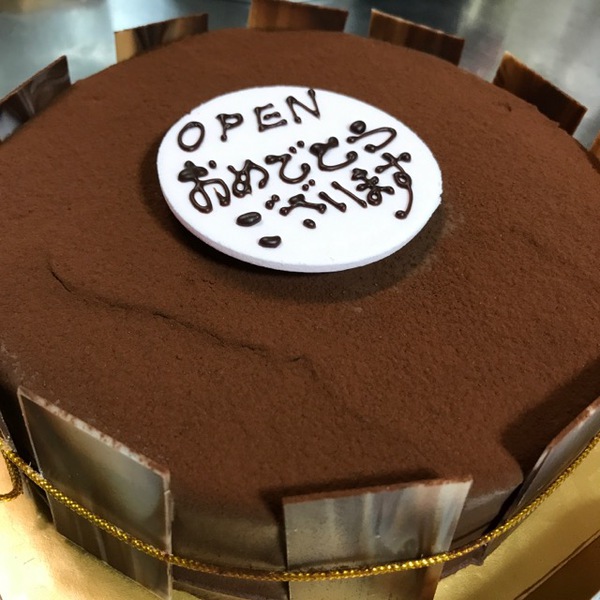 OPEN
おめでとう
ございます